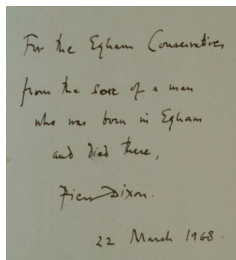 For the Egham Conservatives
from the son of a man
who was born in Egham
and died there,
Piers Dixon.
22 March 1968.